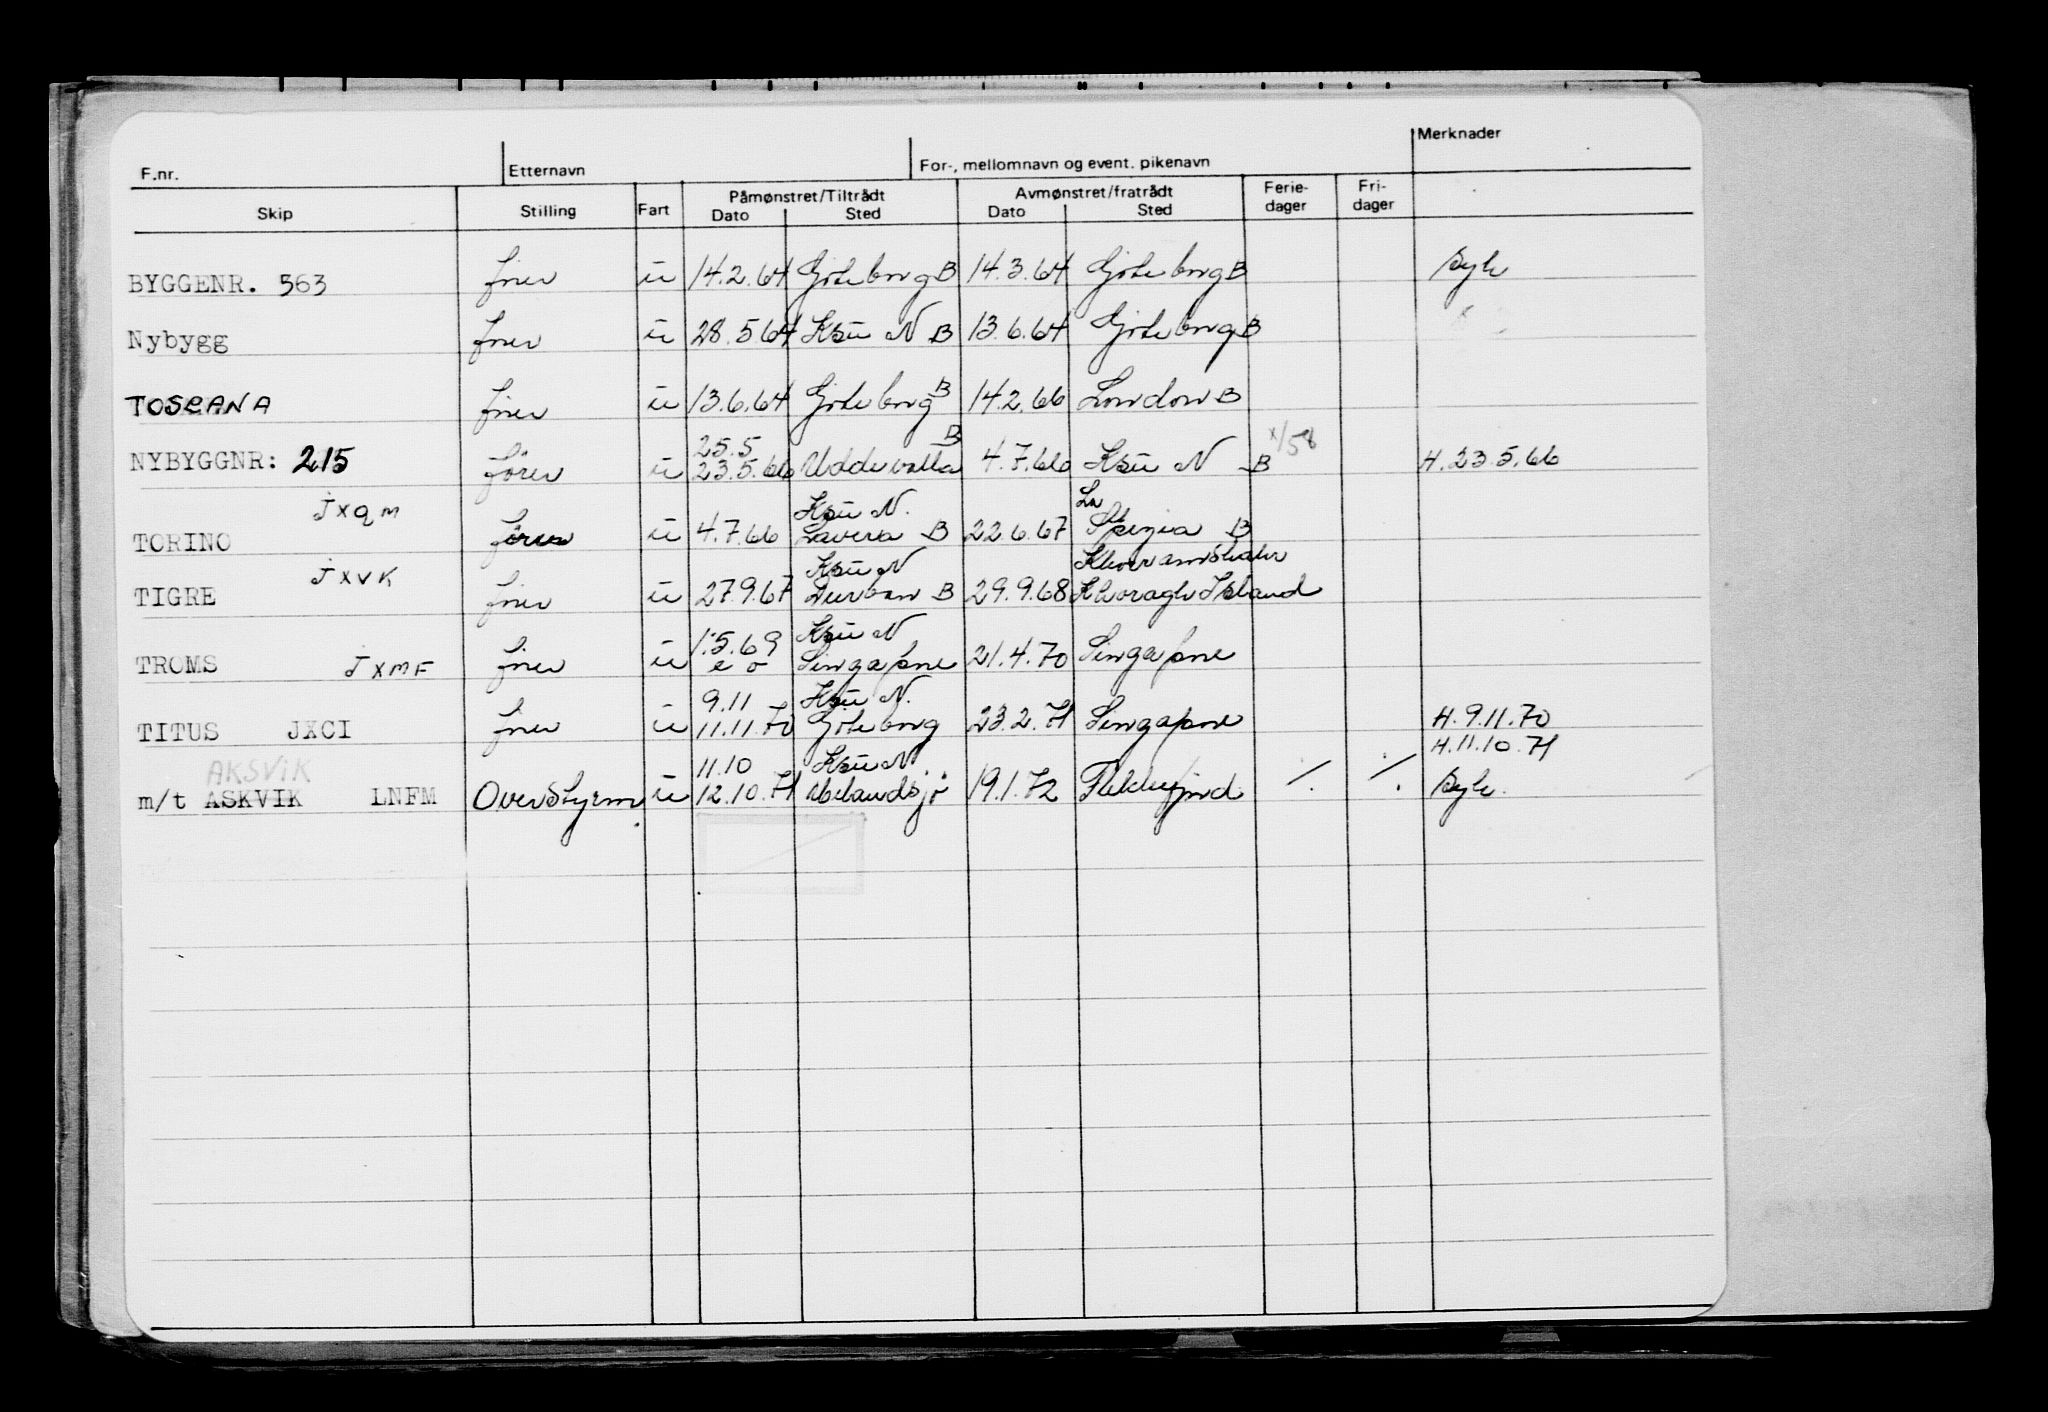 F.nr. Etternavn For-, mellomnavn og event. pikenavn Merknader
Skip Stilling Fart Påmønstret/Tiltrådt Dato Sted Avmønstret/fratrådt Dato Sted Ferie-dager Fri-dager
BYGGENR. 563 fører u 14.2.64 Göteborg B 14.3.64 Göteborg B Syk
Nybygg fører u 28.5 64 Ksu N B 13.6.64 Göteborg B
TOSCANA fører u 13.6.64 Göteborg B 14.2.66 London B
25.5 B x/58
NYBYGGNR: 215 fører u 23.5.66 Uddevalla 4.7.66 Ksu N B H.23.5.66
JXQM Ksu N. La
TORINO fører u 4.7.66 Lavera B 22.6.67 Spezia B
JXVK Ksu N Khorramshahr
TIGRE fører u 27.9.67 Durban B 29.9.68 Kharagh Island
1.5.69 Ksu N
TROMS JXMF fører u e o Singapore 21.4.70 Singapore
9.11 Ksu N.
TITUS JXCI fører u 11.11.70 Göteborg 23.2.71 Singapore H.9.11.70
AKSVIK 11.10 Ksu N H.11.10.71
m/t ASKVIK LNFM Overstyrm. u 12.10.71 19.1.72 Flekkefjord ./. ./. Syk.